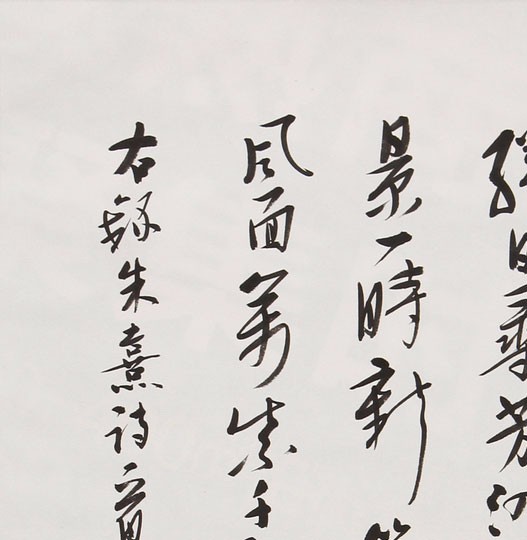 勝日尋芳泗
景一時新
風面萬紫千
右録朱熹詩一首